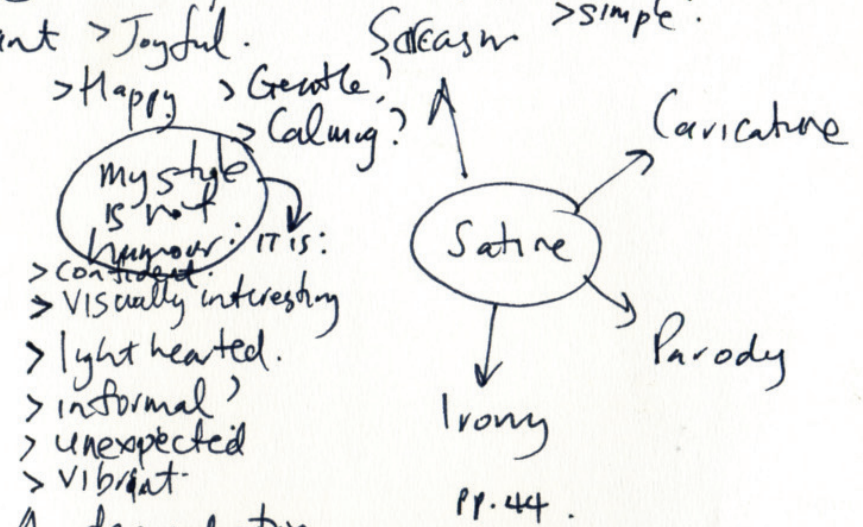 > Joyful.
> Happy
> Gentle?
> Calming?
my style
is not
humour: IT IS:
> confident.
> visually interesting
> light hearted.
> informal?
> unexpected
> vibrant
> simple.
Sarcasm
Caricature
Satire
Parody
Irony
pp. 44.